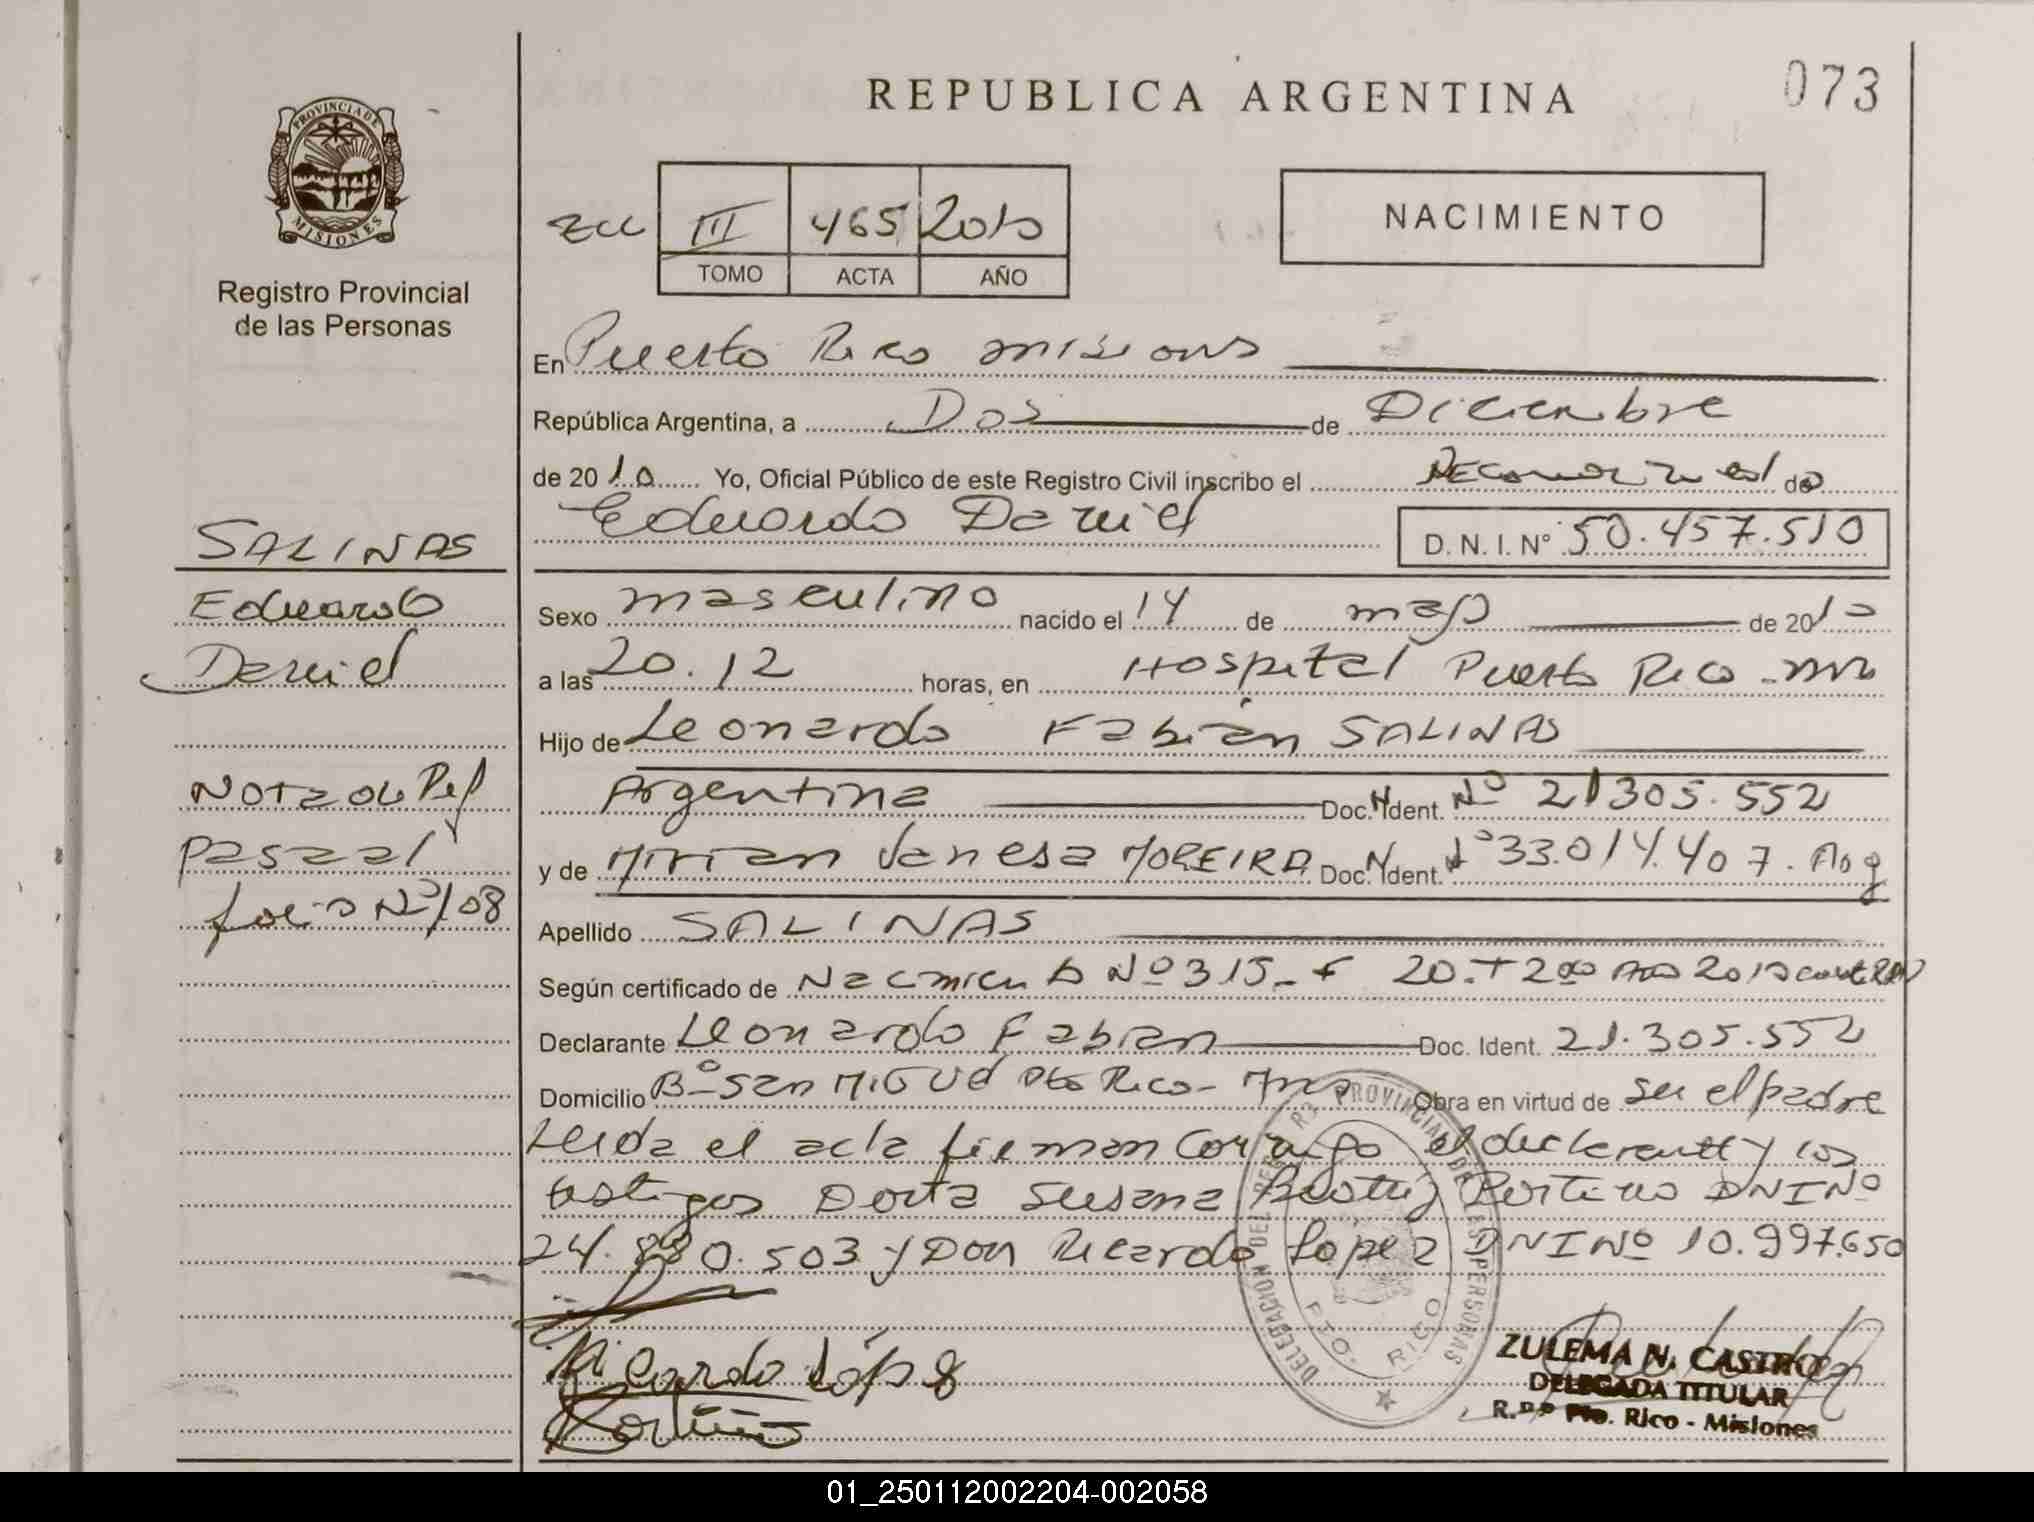 REPUBLICA ARGENTINA
073
PROVINCIA DE MISIONES
Registro Provincial
de las Personas
III 465 2010
TOMO ACTA AÑO
NACIMIENTO
En Puerto Rico misions
República Argentina, a Dos de Diciembre
de 2010 Yo, Oficial Público de este Registro Civil inscribo el de
Eduardo Daniel
D. N. I. Nº 50.457.510
SALINAS
Eduardo
Daniel
Nota de Ref
pasaal
folio Nº 108
Sexo masculino nacido el 14 de mayo de 2010
a las 20.12 horas, en Hospital Puerto Rico
Hijo de Leonardo Fabián SALINAS
Argentina Doc. Ident. Nº 21305.552
y de Mirian Vanesa MOREIRA Doc. Ident. Nº 33.014.407.
Apellido SALINAS
Según certificado de Nacimiento Nº 315
Declarante Leonardo Fabian Doc. Ident. 21.305.552
Domicilio Bº San Miguel Pto Rico Obra en virtud de ser el padre
Leida el acta firman conmigo el declarante y los
testigos Doña Susana Beatriz Portino DNI Nº
24.880.503 y Don Ricardo Lopez DNI Nº 10.997.650
DELEGACION DEL REG. PROVINCIAL DE LAS PERSONAS
PTO. RICO
Ricardo López
ZULEMA N. CASTRO
DELEGADA TITULAR
Pto. Rico - Misiones
01_250112002204-002058